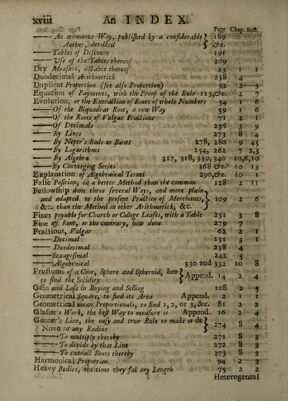 xviii An INDEX.
Page Chap. Sect.
— An erroneous Way, published by a considerable Author, detected } 189 &c.
— Tables of Discount 191
— Use of the Tables thereof 209
Dry Measures, a Table thereof 23 1 2
Duodecimal Arithmetick 238 4
Duplicate Proportion (see also Proportion) 92 2 4
Equation of Payments, with the Proof of the Rule 113, &c. 2 7
Evolution, or the Extraction of Roots of whole Numbers 54 1 6
— Of the Biquadrat Root, a new Way 59 1 6
— Of the Roots of Vulgar Fractions 71 2 1
— Of Decimals 236 3 9
— By Lines 273 8 4
— By Neper's Rods or Bones 278, 280 9 45
— By Logarithms 254, 262 7 2,3
— By Algebra 317, 318, 339, 340 10,6,10
— By Converging Series 368 &c. 10 13
Explanation of Algebraical Terms 290, &c. 10 1
False Position, in a better Method than the common 128 2 11
Fellowship done three several Ways, and more plain and adapted to the present Practice of Merchants, &c. than the Method in other Arithmetick, &c. } 109 2 6
Fines payable for Church or College Leases, with a Table 231 3 8
Four off Rents, or the contrary, how done 279 9 5
Fractions, Vulgar 62 2 1
— Decimal 131 3 1
— Duodecimal 238 4
— Sexagesimal 242 5
— Algebraical 330 and 332 10 8
Frustums of a Cone, Sphere and Spheroid, how to find the Solidity } Append. 14 2 4
Gain and Loss in Buying and Selling 108 2 5
Geometrical Square, to find its Area Append. 2 1 1
Geometrical mean Proportionals, to find 1, 2, or 3, &c. 81 2 2
Glasier's Work, the best Way to measure it Append. 16 2 4
Gunter's Line, the easy and true Rule to make it de Novo to any Radius } 274 8 4
— To multiply thereby 271 8 3
— To divide by that Line 272 8 3
— To extract Roots thereby 273 8 3
Harmonical Proportion 94 2 3
Heavy Bodies, the time they fall any Length 75 2 2
Heterogeneal